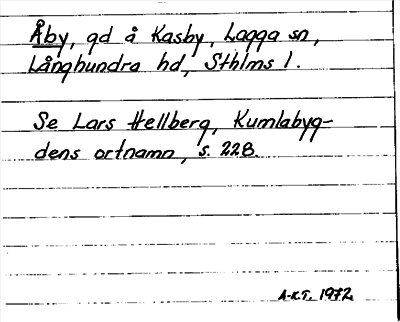 Åby, gd å Kasby, Lagga sn,
Långhundra hd, Sthlms l.
Se Lars Hellberg, Kumlabyg-
dens ortnamn, s. 228.
A-K.T. 1972